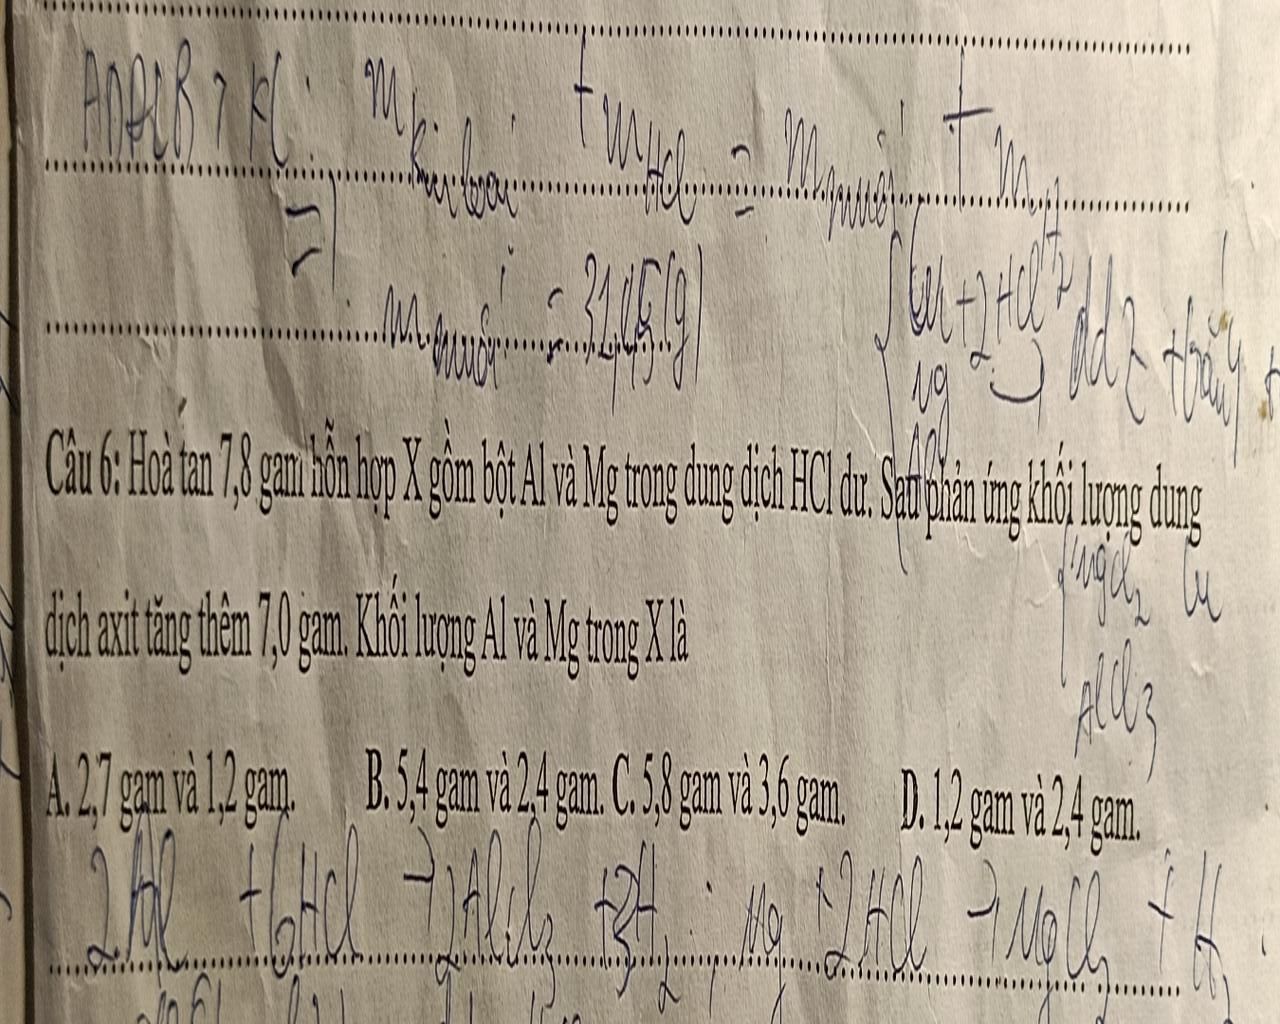 ADĐLBTKL: m kim loại + mHCl = m muối + mH2
=> m muối = 31,45(g)
Cu + 2HCl dd Z + rắn Y +
Mg
Al
Câu 6: Hoà tan 7,8 gam hỗn hợp X gồm bột Al và Mg trong dung dịch HCl dư. Sau phản ứng khối lượng dung
MgCl2 Cu
dịch axit tăng thêm 7,0 gam. Khối lượng Al và Mg trong X là
AlCl3
A. 2,7 gam và 1,2 gam. B. 5,4 gam và 2,4 gam. C. 5,8 gam và 3,6 gam. D. 1,2 gam và 2,4 gam.
2Al + 6HCl → 2AlCl3 + 3H2 ; Mg + 2HCl → MgCl2 + H2